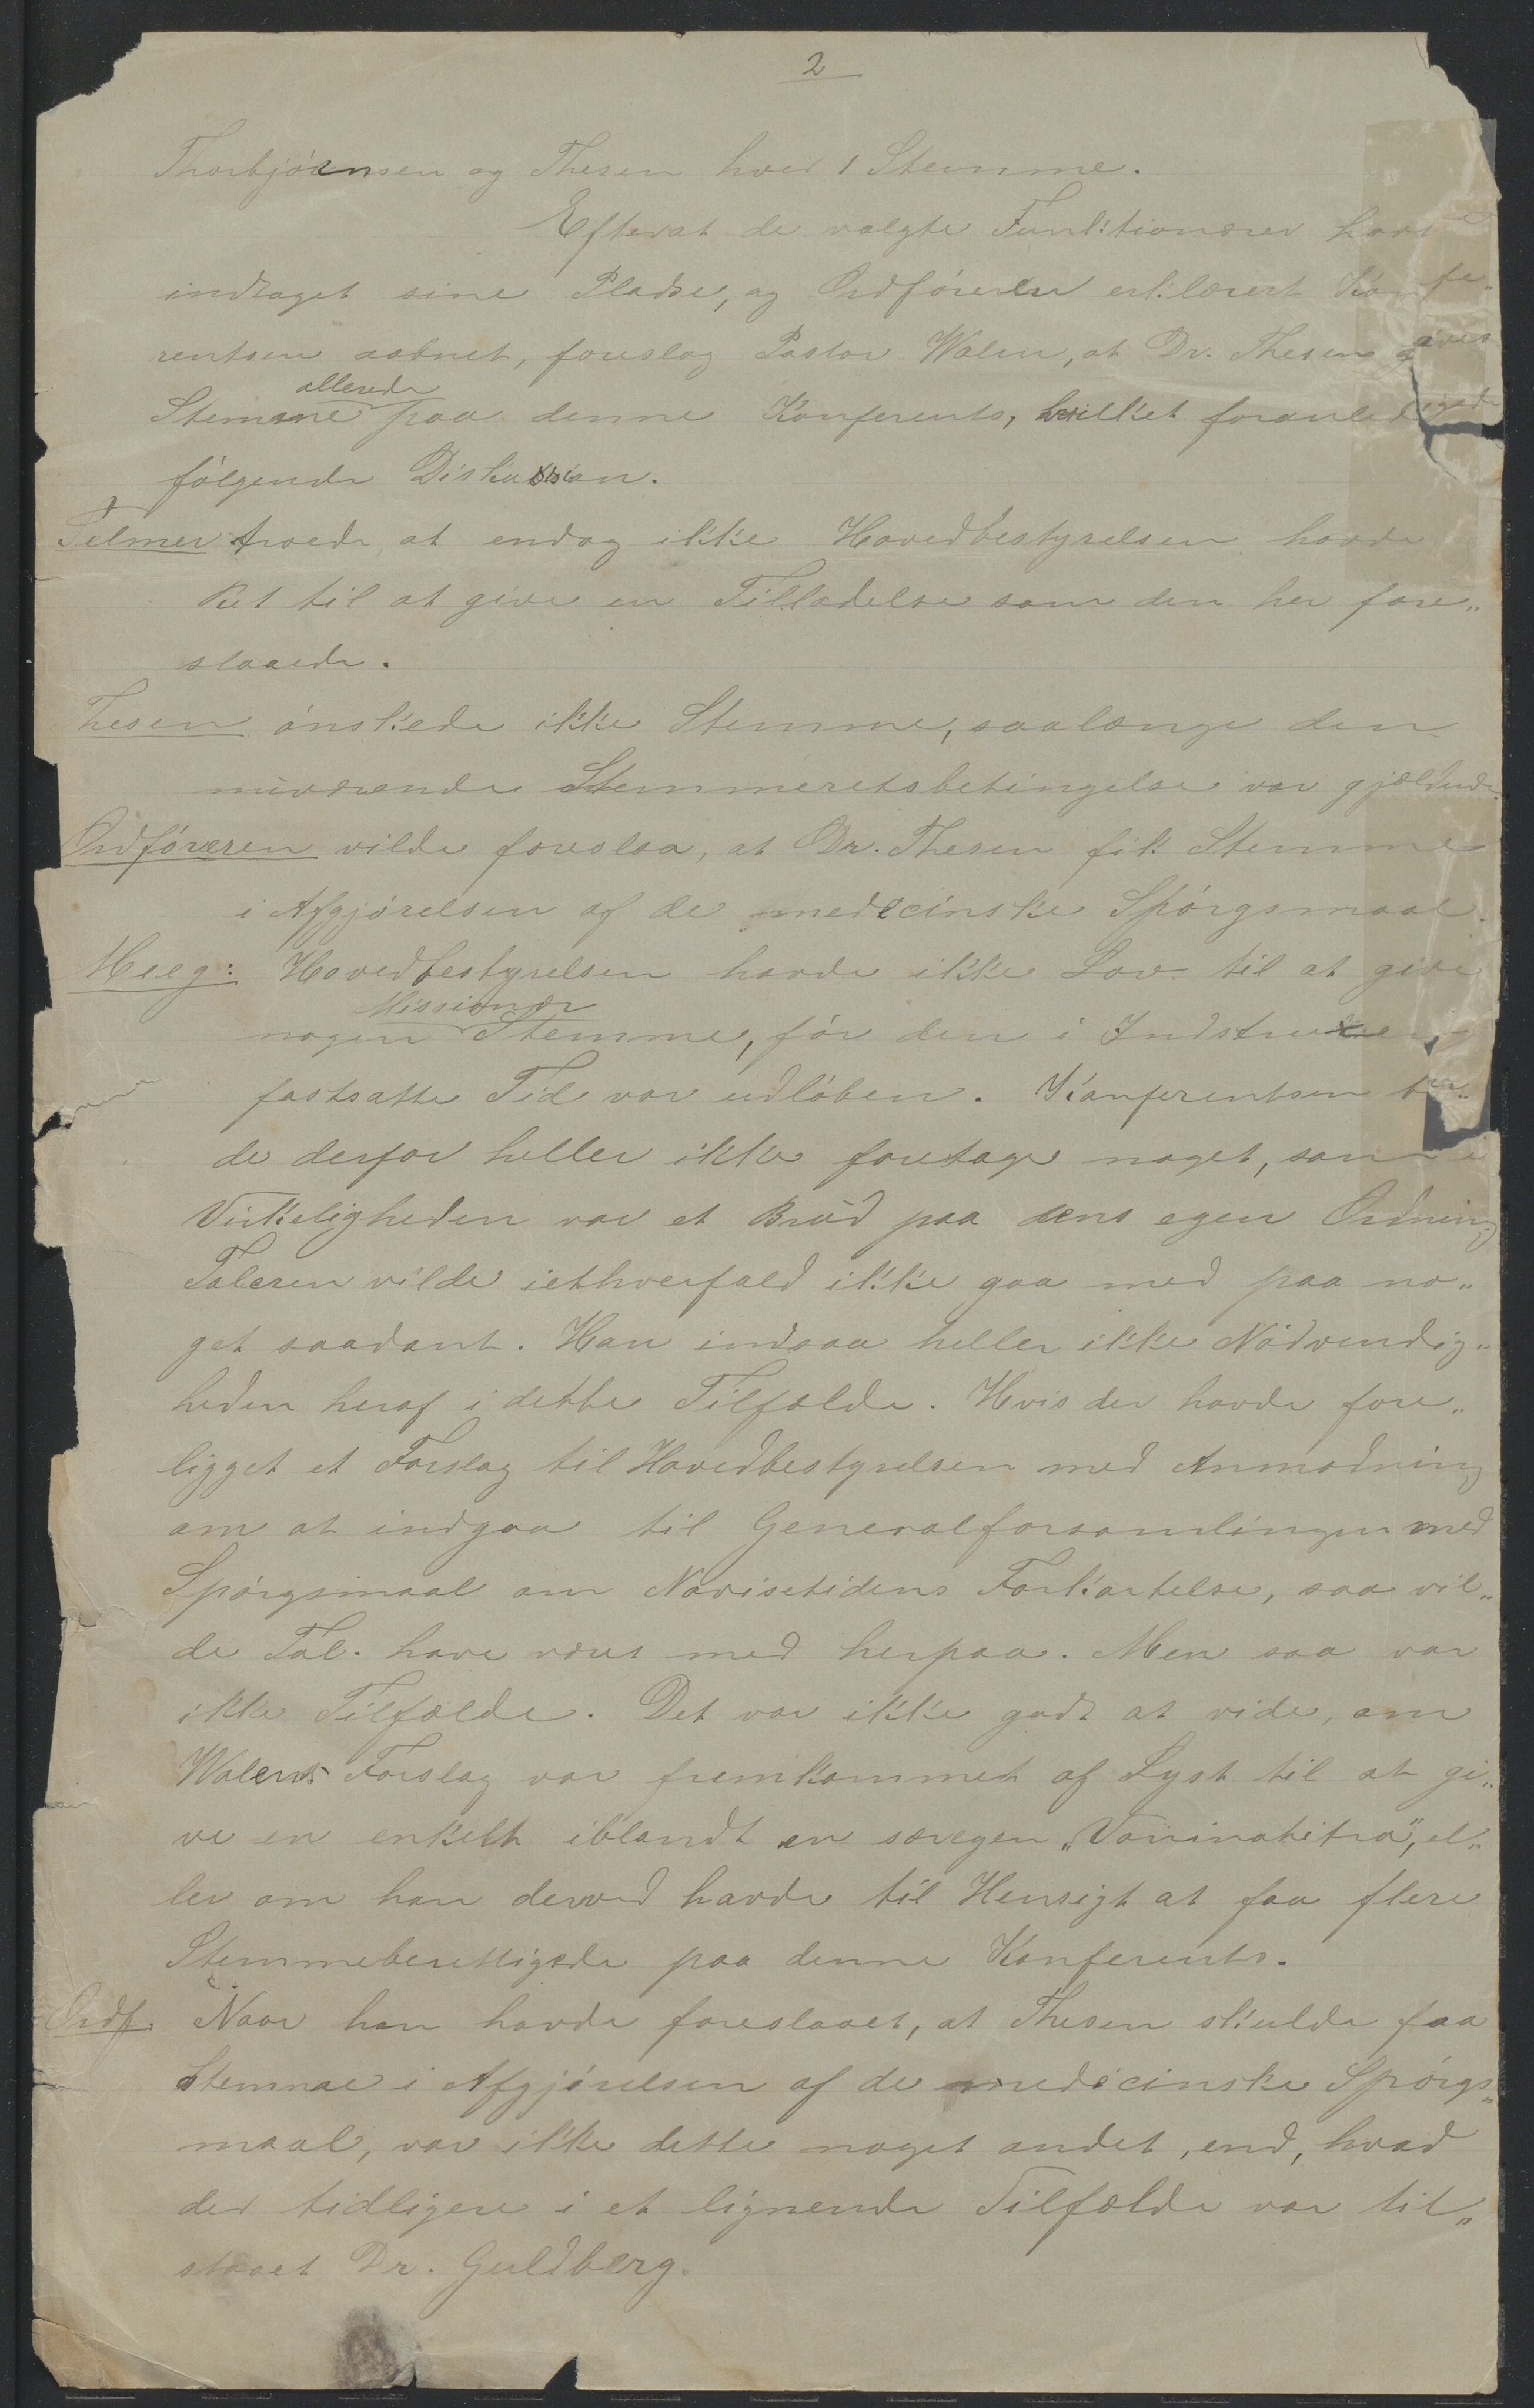 2
Thorbjörnsen og Thesen hver 1 Stemme.
Efterat de valgte Funktionærer havde
indtaget sine Pladse, og Ordföreren erklæret Konfe-
rentsen aabnet, foreslog Pastor Walen, at Dr. Thesen gives
allerede
Stemme paa denne Konferents, hvilket foranledigede
fölgende Diskussion.
Selmer troede, at endog ikke Hovedbestyrelsen havde
Ret til at give en Tilladelse som den her fore„
slaaede.
Thesen önskede ikke Stemme, saalænge den
nuværende Stemmeretsbetingelse var gjældende.
Ordföreren vilde foreslaa, at Dr. Thesen fik Stemme
i Afgjörelsen af de medicinske Spörgsmaal.
Meeg: Hovedbestyrelsen havde ikke Lov til at give
Missionær
nogen Stemme, för den i Indstruxen
fastsatte Tid var udlöben. Konferentsen bur„
de derfor heller ikke foretage noget, som i
Virkeligheden var et Brud paa dens egen Ordning
Taleren vilde iethverfald ikke gaa med paa no„
get saadant. Han indsaa heller ikke Nödvendig„
heden heraf i dette Tilfælde. Hvis der havde fore„
ligget et Forslag til Hovedbestyrelsen med Anmodning
om at indgaa til Generalforsamlingen med
Spörgsmaal om Novisetidens Forkortelse, saa vil„
de Tal. have været med herpaa. Men saa var
ikke Tilfælde. Det var ikke godt at vide, om
Walens Forslag var fremkommet af Lyst til at gi„
ve en enkelt iblandt en særegen „Voninahitra", el„
ler om han derved havde til Hensigt at faa flere
Stemmeberettigede paa denne Konferents.
Ordf. Naar han havde foreslaaet, at Thesen skulde faa
Stemme i Afgjörelsen af de medicinske Spörgs„
maal, var ikke dette noget andet, end, hvad
der tidligere i et lignende Tilfælde var til„
staaet Dr. Guldberg.